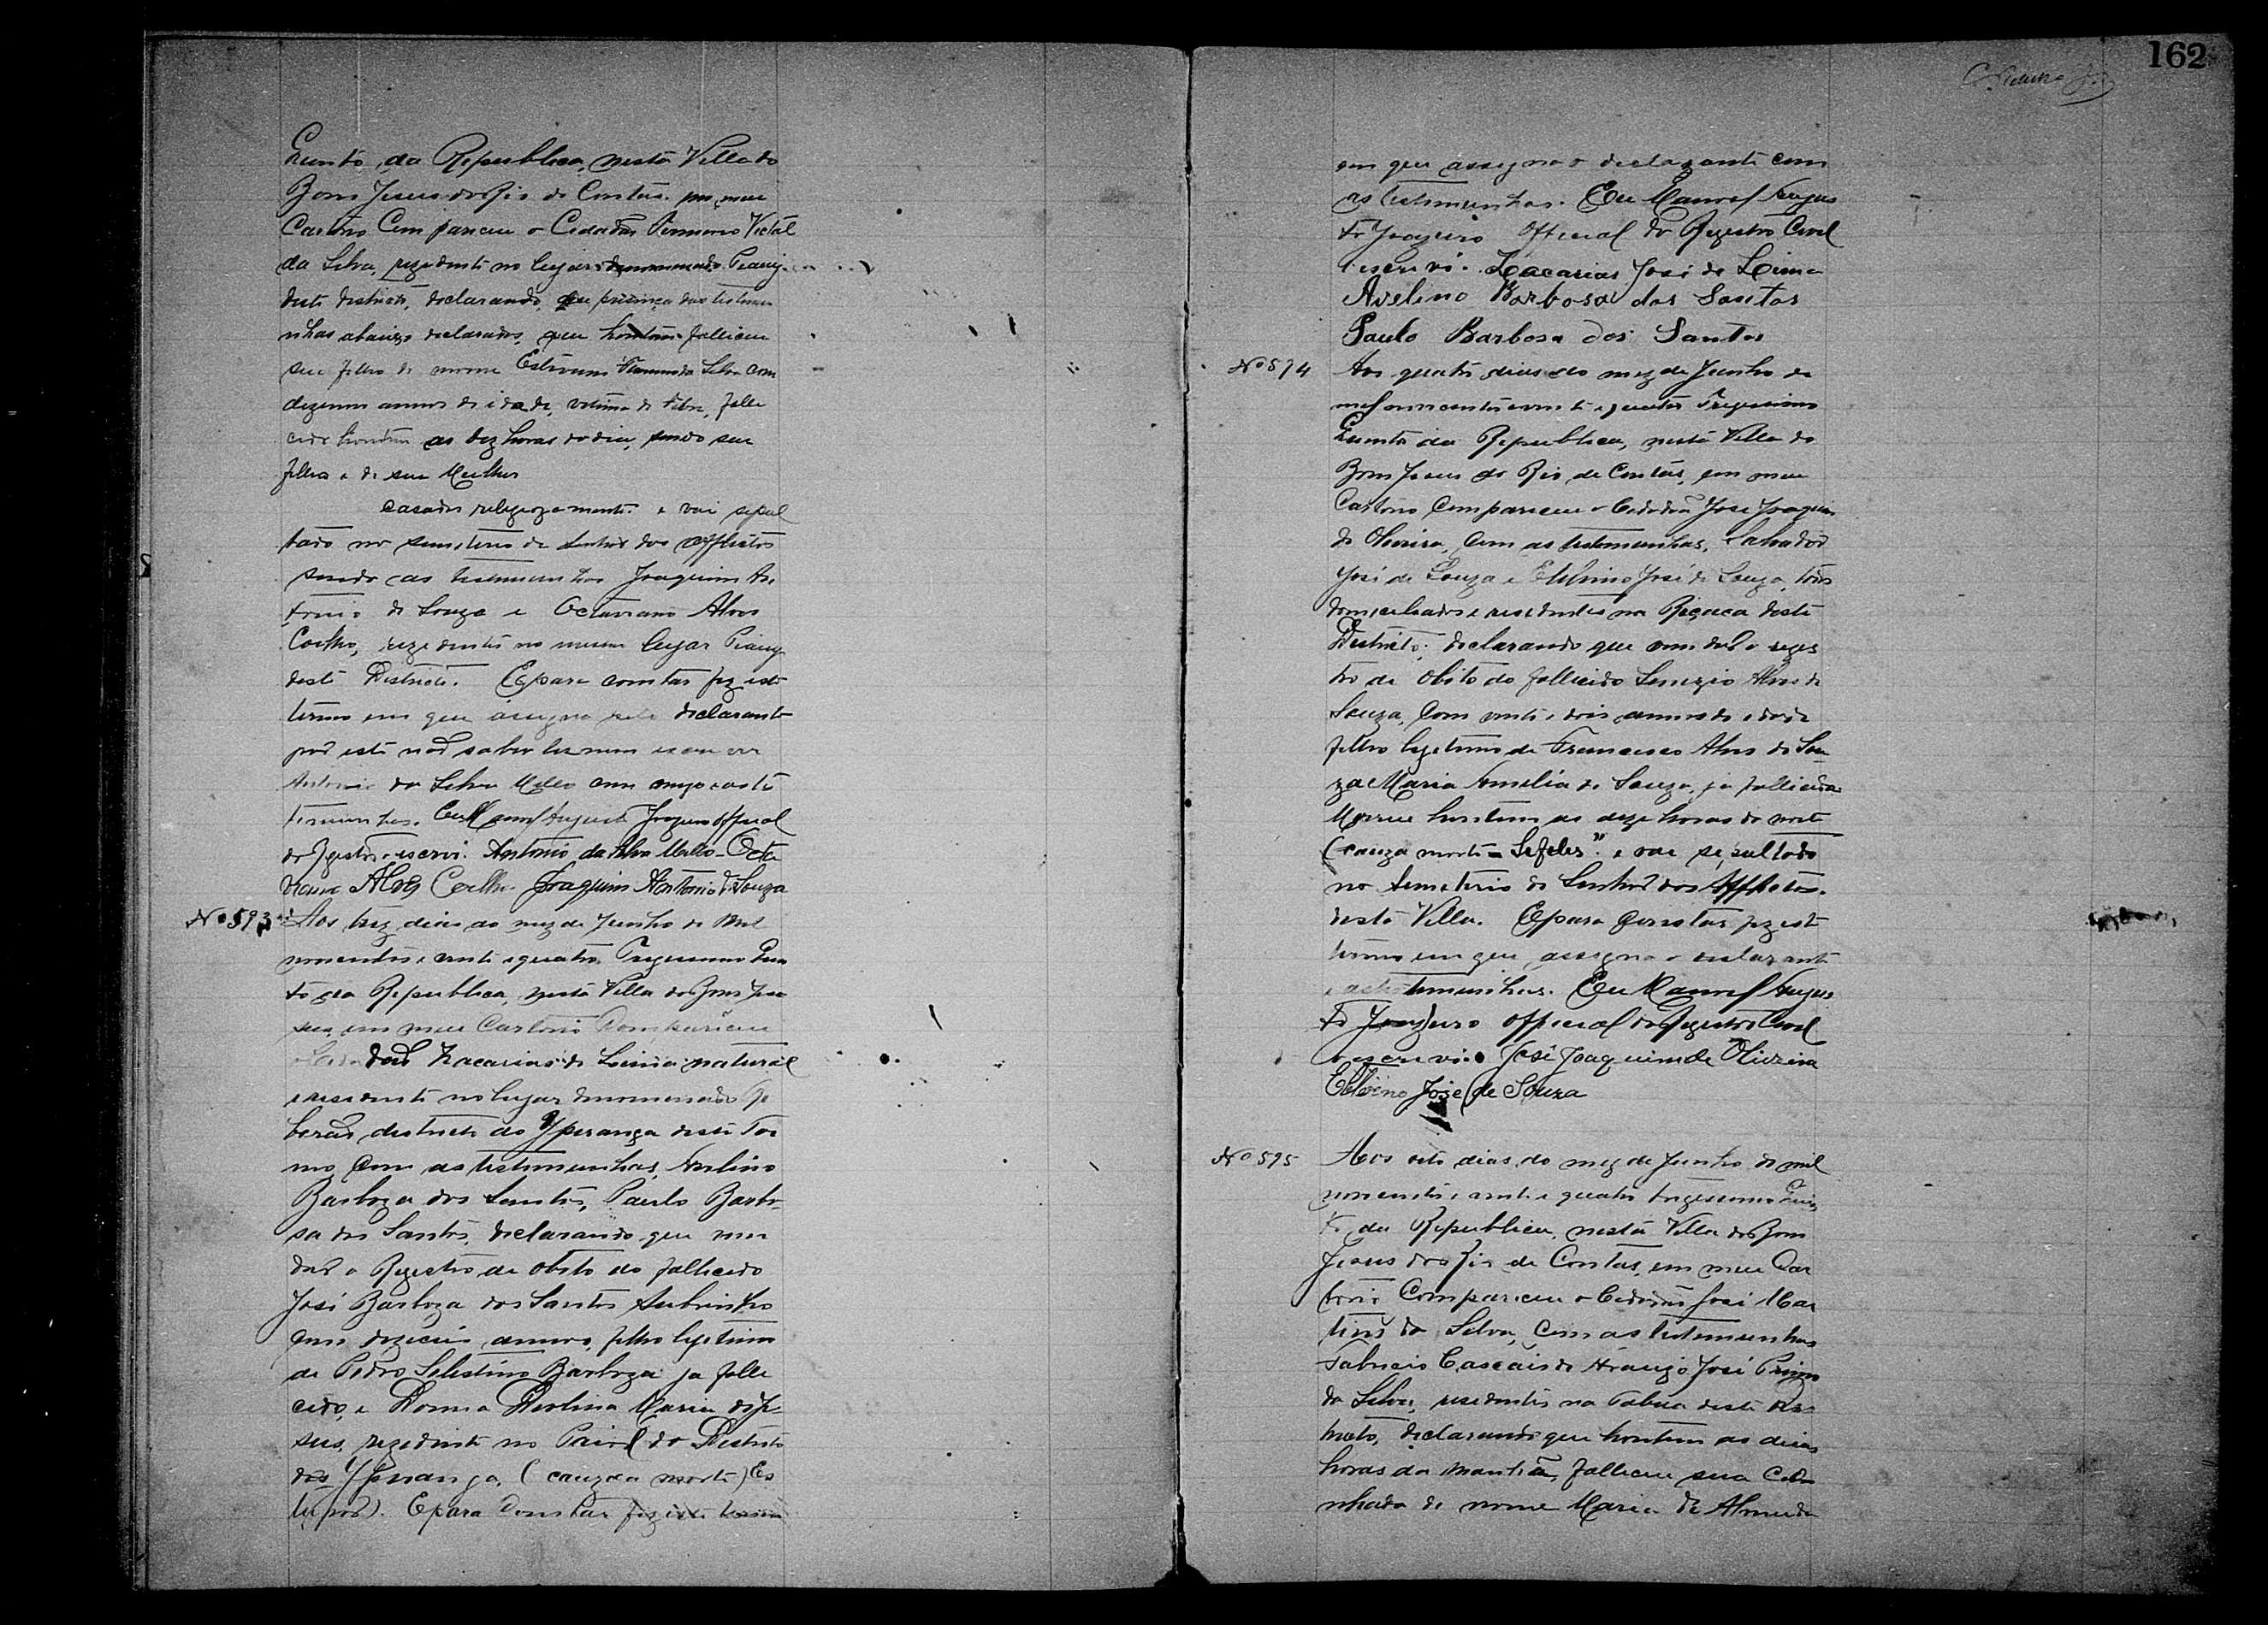 162
Quinto, da Republica, nesta Villa do
Bom Jesus do Rio de Contas. em meu
Cartorio Compareceu o Cidadão Firmino Victal
da Silva, rezidente no lugar denominado Piauy
deste districto, declarando, que prezença das testemu
nhas abaixo declarados, que hontem falleceu
seu filho de nome Estevam Firmino da Silva com
dezenove annos de idade, vitima de febre, falle
cido hontem as dez horas do dia, sendo seu
filho e de sua Mulher
casados religiozamente. e vai sepul
tado no semiterio do Senhor dos Afflictos
sendo as tesemunhas Joaquim An
tonio de Souza e Octaviano Alves
Coelho, rezidentes no mesmo lugar Piauy
deste Districto. E para constar fiz este
termo em que assigna pelo declarante
por este não saber ler nem escrever
Antonio da Silva Mello com migo e as tes
temunhas. Eu Manoel Augusto Joazeiro Official
do Registro o escrevi. Antonio da Silva Mello - Octa
viano Alves Coelho. Joaquim Antonio de Souza
Nº 593
Aos trez dias do mez de Junho de mil
novecentos e vinte e quatro, Trigessimo Quin
to da Republica, nesta Villa do Bom Je
sus, em meu Cartorio Compareceu
o Cidadão Zacarias de Lima natural
e residente no lugar denominado Ri
beirão districto do Ypiranga deste Ter
mo, Com as testemunhas, Avelino
Barboza dos Santos, Paulo Barbo
sa dos Santos, declarando que vem
dar o Registro de obito do fallecido
José Barboza dos Santos Subrinho
com dezeceis annos, filho legitimo
de Pedro Selestino Barboza ja falle
cido, e Donna Maria de Je
sus, rezidente no do Destrito
do Ypiranga. (cauza da morte) Es
tupor). E para Constar fiz este termo
em que assigna o declarante com
as testimunhas. Eu Manoel Augus
to Joazeiro Official do Registro Civel
o escrevi. Zacarias José de Lima
Avelino Barbosa dos Santos
Paulo Barbosa dos Santos
Nº 594
Aos quatro dias do mez de Junho de
mil novecentos e vinte e quatro Trigessimo
Quinto da Republica, nesta Villa do
Bom Jesus do Rio de Contas, em meu
Cartorio Compareceu o Cidadão José Joaquim
de Oliveira, Com as testemunhas, Salvador
José de Souza e Etelvino José de Souza, todos
domiciliados e residentes na deste
Districto, declarando que vem dar o regis
tro de obito do fallecido Alves de
Souza, Com vinte e dois annos de idade
filho legitimo de Francisco Alves de Sou
za e Maria Amelia de Souza, ja fallecida
Morreu hontem as doze horas da noite
(cauza morte = Sifeles". e vae sepultado
no Semeterio do Senhor dos Afflictos.
desta Villa. E para Constar fiz este
termo em que, assigna o declarante
e as testemunhas. Eu Manoel Augus
to Joazeiro official do Registro Civel
o escrevi. José Joaquim de Oliveira
Etelvino José de Souza
Nº 595
Aos oito dias do mez de Junho de mil
novecentos e vinte e quatro trigessimo Quin
to da Republica, nesta Villa do Bom
Jesus do Rio de Contas, em meu Car
torio Compareceu o Cidadão José Mar
tins da Silva, Com as testemunhas
Fabricio Cascais de Araujo José Primo
da Silva, residentes na Tabua deste Dis
treto, declarando que hontem as deias
horas da manhã, falleceu sua Cu
nhada de nome Maria de Almeida